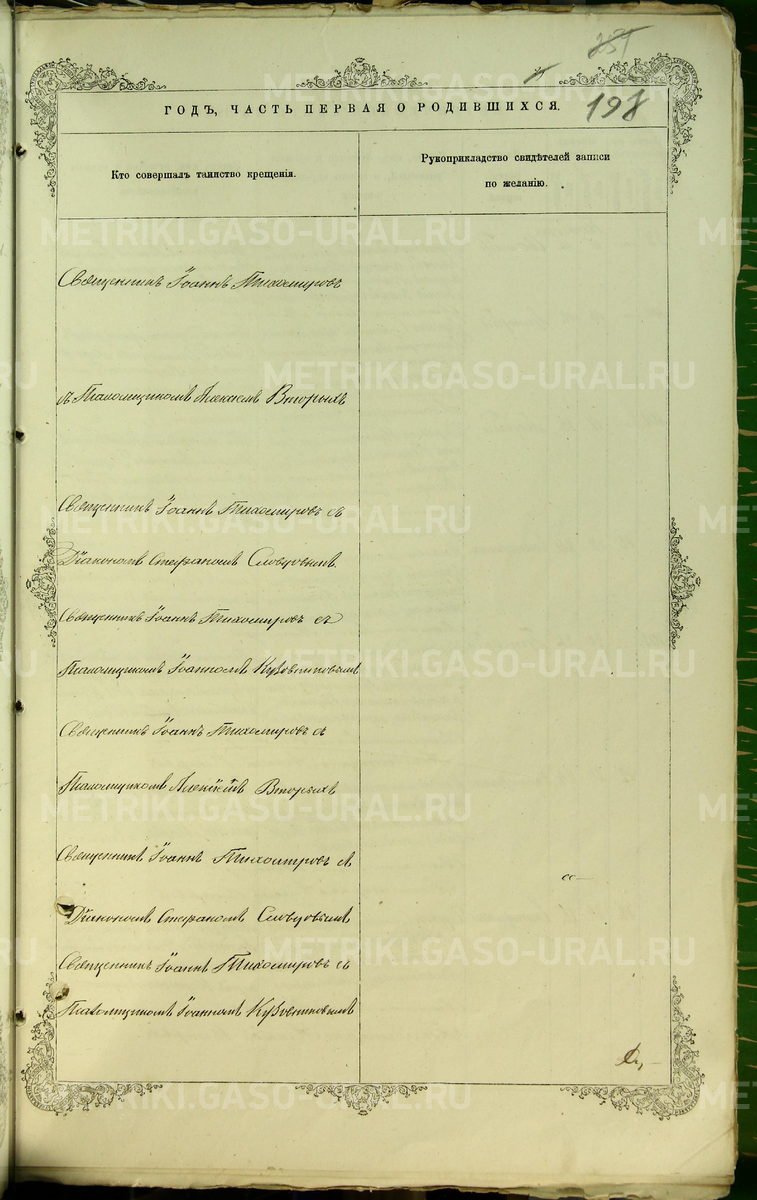 251
198
ГОДЪ, ЧАСТЬ ПЕРВАЯ О РОДИВШИХСЯ.
Кто совершалъ таинство крещенія.
Рукоприкладство свидѣтелей записи
по желанію.
METRIKI.GASO-URAL.RU
Священникъ Іоаннъ Тихомировъ
съ Псаломщикомъ Алексѣемъ Вторыхъ
Священникъ Іоаннъ Тихомировъ съ
Діакономъ Стефаномъ Словцовымъ.
Священникъ Іоаннъ Тихомировъ съ
Псаломщикомъ Іоанномъ Кузовниковымъ
Священникъ Іоаннъ Тихомировъ съ
Псаломщикомъ Алексіемъ Вторыхъ
Священникъ Іоаннъ Тихомировъ съ
Діакономъ Стефаномъ Словцовымъ
Священникъ Іоаннъ Тихомировъ съ
Псаломщикомъ Іоанномъ Кузовниковымъ